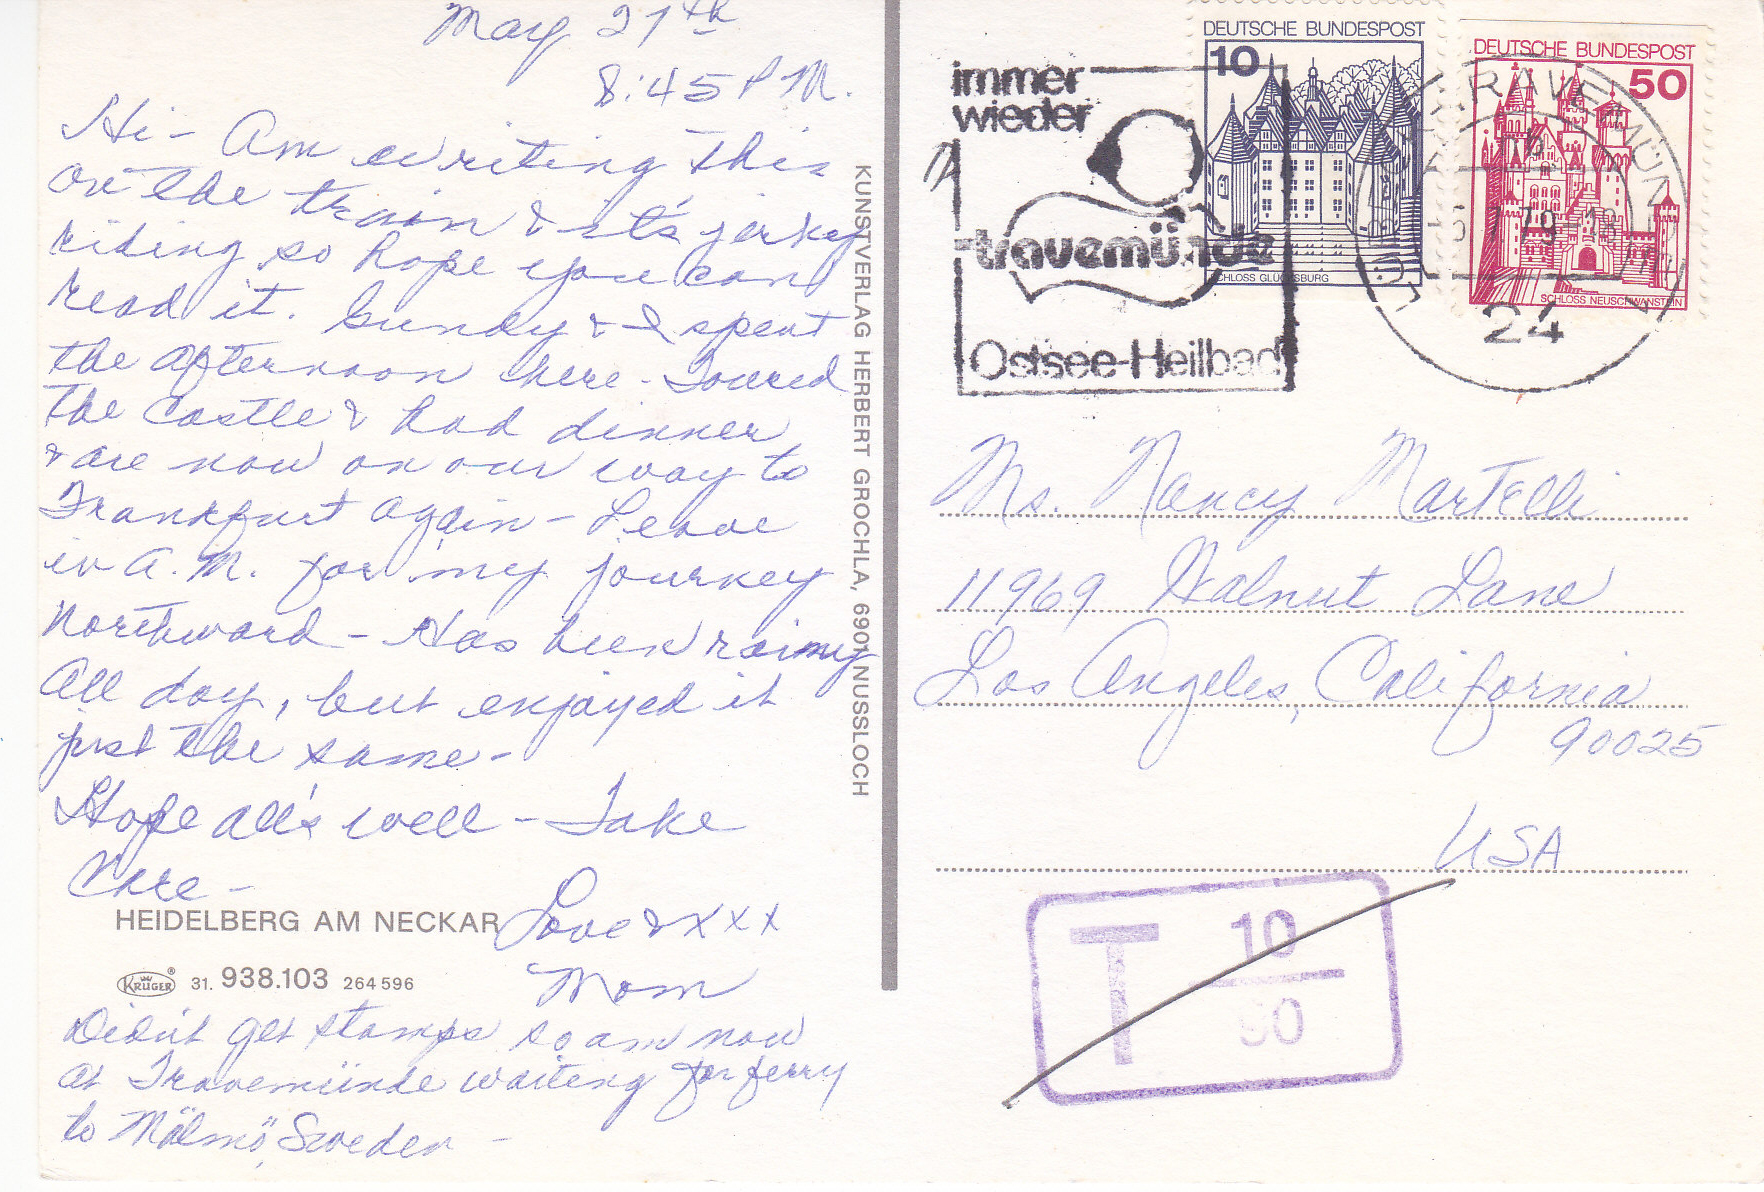 May 27th
8:45 P.M.
Hi - Am writing this
on the train & it's jerky
riding so hope you can
read it. Gundy & I spent
the afternoon here - Toured
the castle & had dinner
& are now on our way to
Frankfurt again - Leave
in A.M. for my journey
Northward - Has been rainy
all day, but enjoyed it
just the same -
Hope all's well - Take
Care -
Love & xxx
Mom
HEIDELBERG AM NECKAR
KRÜGER® 31. 938.103 264 596
Didn't get stamps so am now
at Travemünde waiting for ferry
to Mälmö, Sweden -
KUNSTVERLAG HERBERT GROCHLA, 6901 NUSSLOCH
immer
wieder
travemünde
Ostsee-Heilbad
DEUTSCHE BUNDESPOST
10
SCHLOSS GLÜCKSBURG
DEUTSCHE BUNDESPOST
50
SCHLOSS NEUSCHWANSTEIN
24
Ms. Nancy Martelli
11969 Walnut Lane
Los Angeles, California
90025
USA
T 10
90